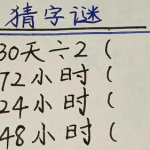 猜字谜
30天÷2（
72小时（
24小时（
48小时（